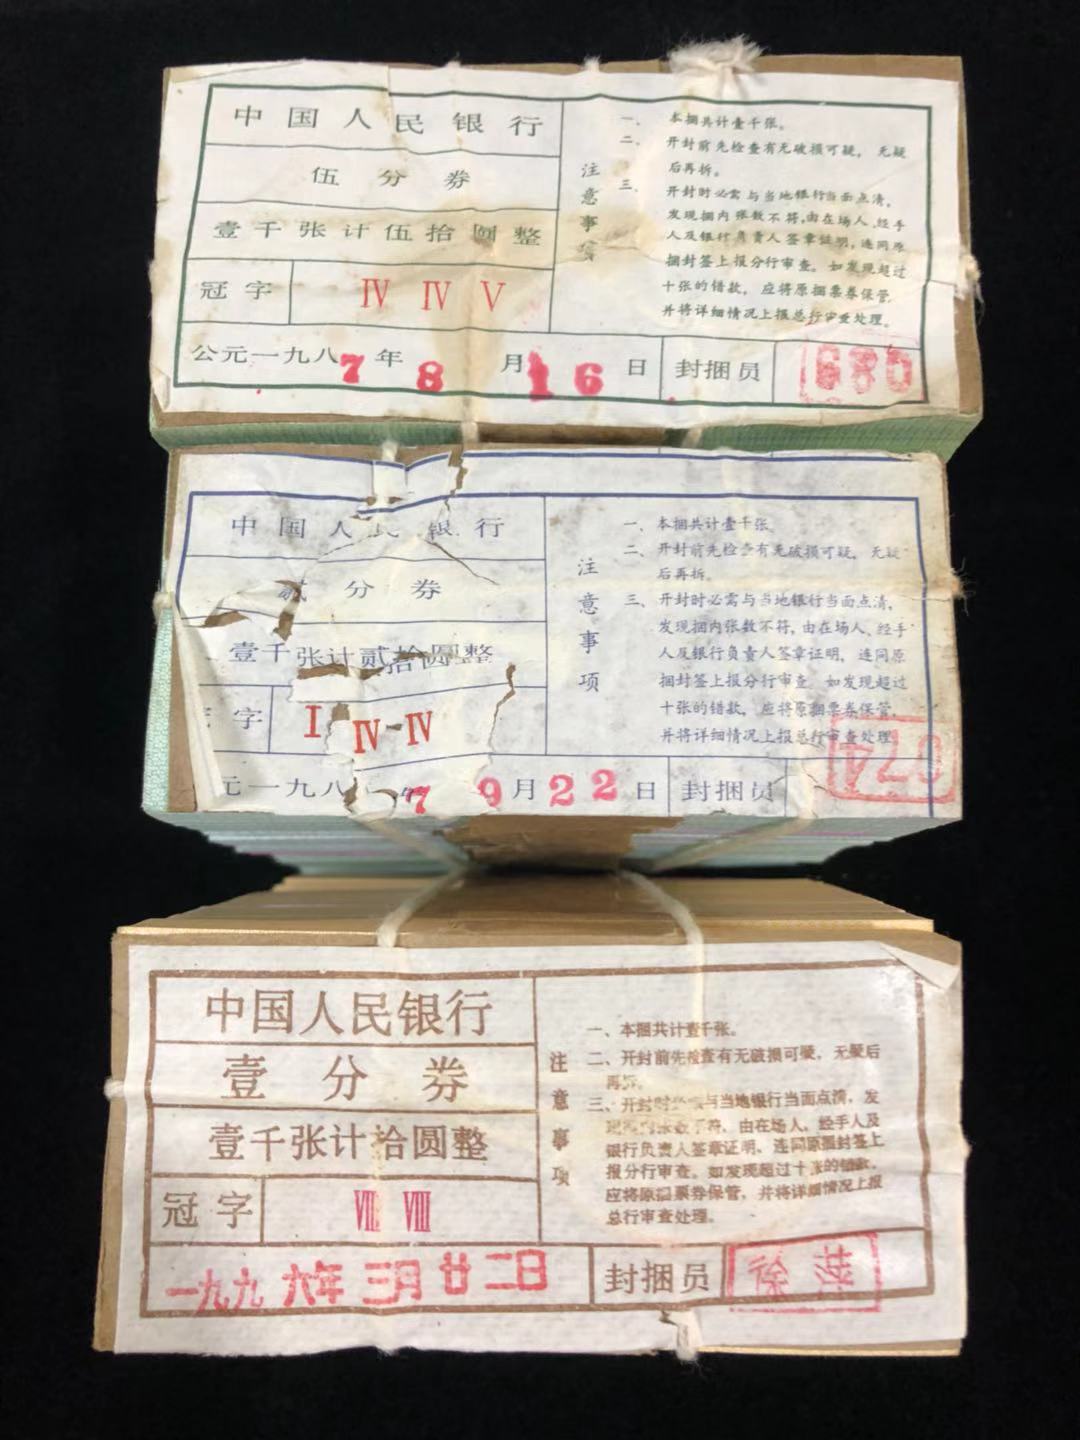 中国人民银行
伍分券
壹千张计伍拾圆整
冠字 Ⅳ Ⅳ Ⅴ
公元一九八7年8月16日 封捆员 685
注意事
一、本捆共计壹千张。
二、开封前先检查有无破损可疑，无疑
后再拆。
三、开封时必需与当地银行当面点清，
发现捆内张数不符，由在场人、经手
人及银行负责人签章证明，连同原
捆封签上报分行审查。如发现超过
十张的错款，应将原捆票券保管，
并将详细情况上报总行审查处理。
中国人民银行
贰分券
壹千张计贰拾圆整
字 Ⅰ Ⅳ-Ⅳ
元一九八7 9月22日 封捆员 074
注意事项
一、本捆共计壹千张
二、开封前先检查有无破损可疑，无疑
后再拆。
三、开封时必需与当地银行当面点清，
发现捆内张数不符，由在场人、经手
人及银行负责人签章证明，连同原
捆封签上报分行审查。如发现超过
十张的错款，应将原捆票券保管，
并将详细情况上报总行审查处理。
中国人民银行
壹分券
壹千张计拾圆整
冠字 Ⅷ Ⅷ
一九九六年三月廿二日 封捆员 徐萍
注意事项
一、本捆共计壹千张。
二、开封前先检查有无破损可疑，无疑后
再拆。
三、开封时与当地银行当面点清，发
张数不符，由在场人，经手人及
银行负责人签章证明、连同原捆封签上
报分行审查。如发现超过十张的错款，
应将原捆票券保管，并将详细情况上报
总行审查处理。